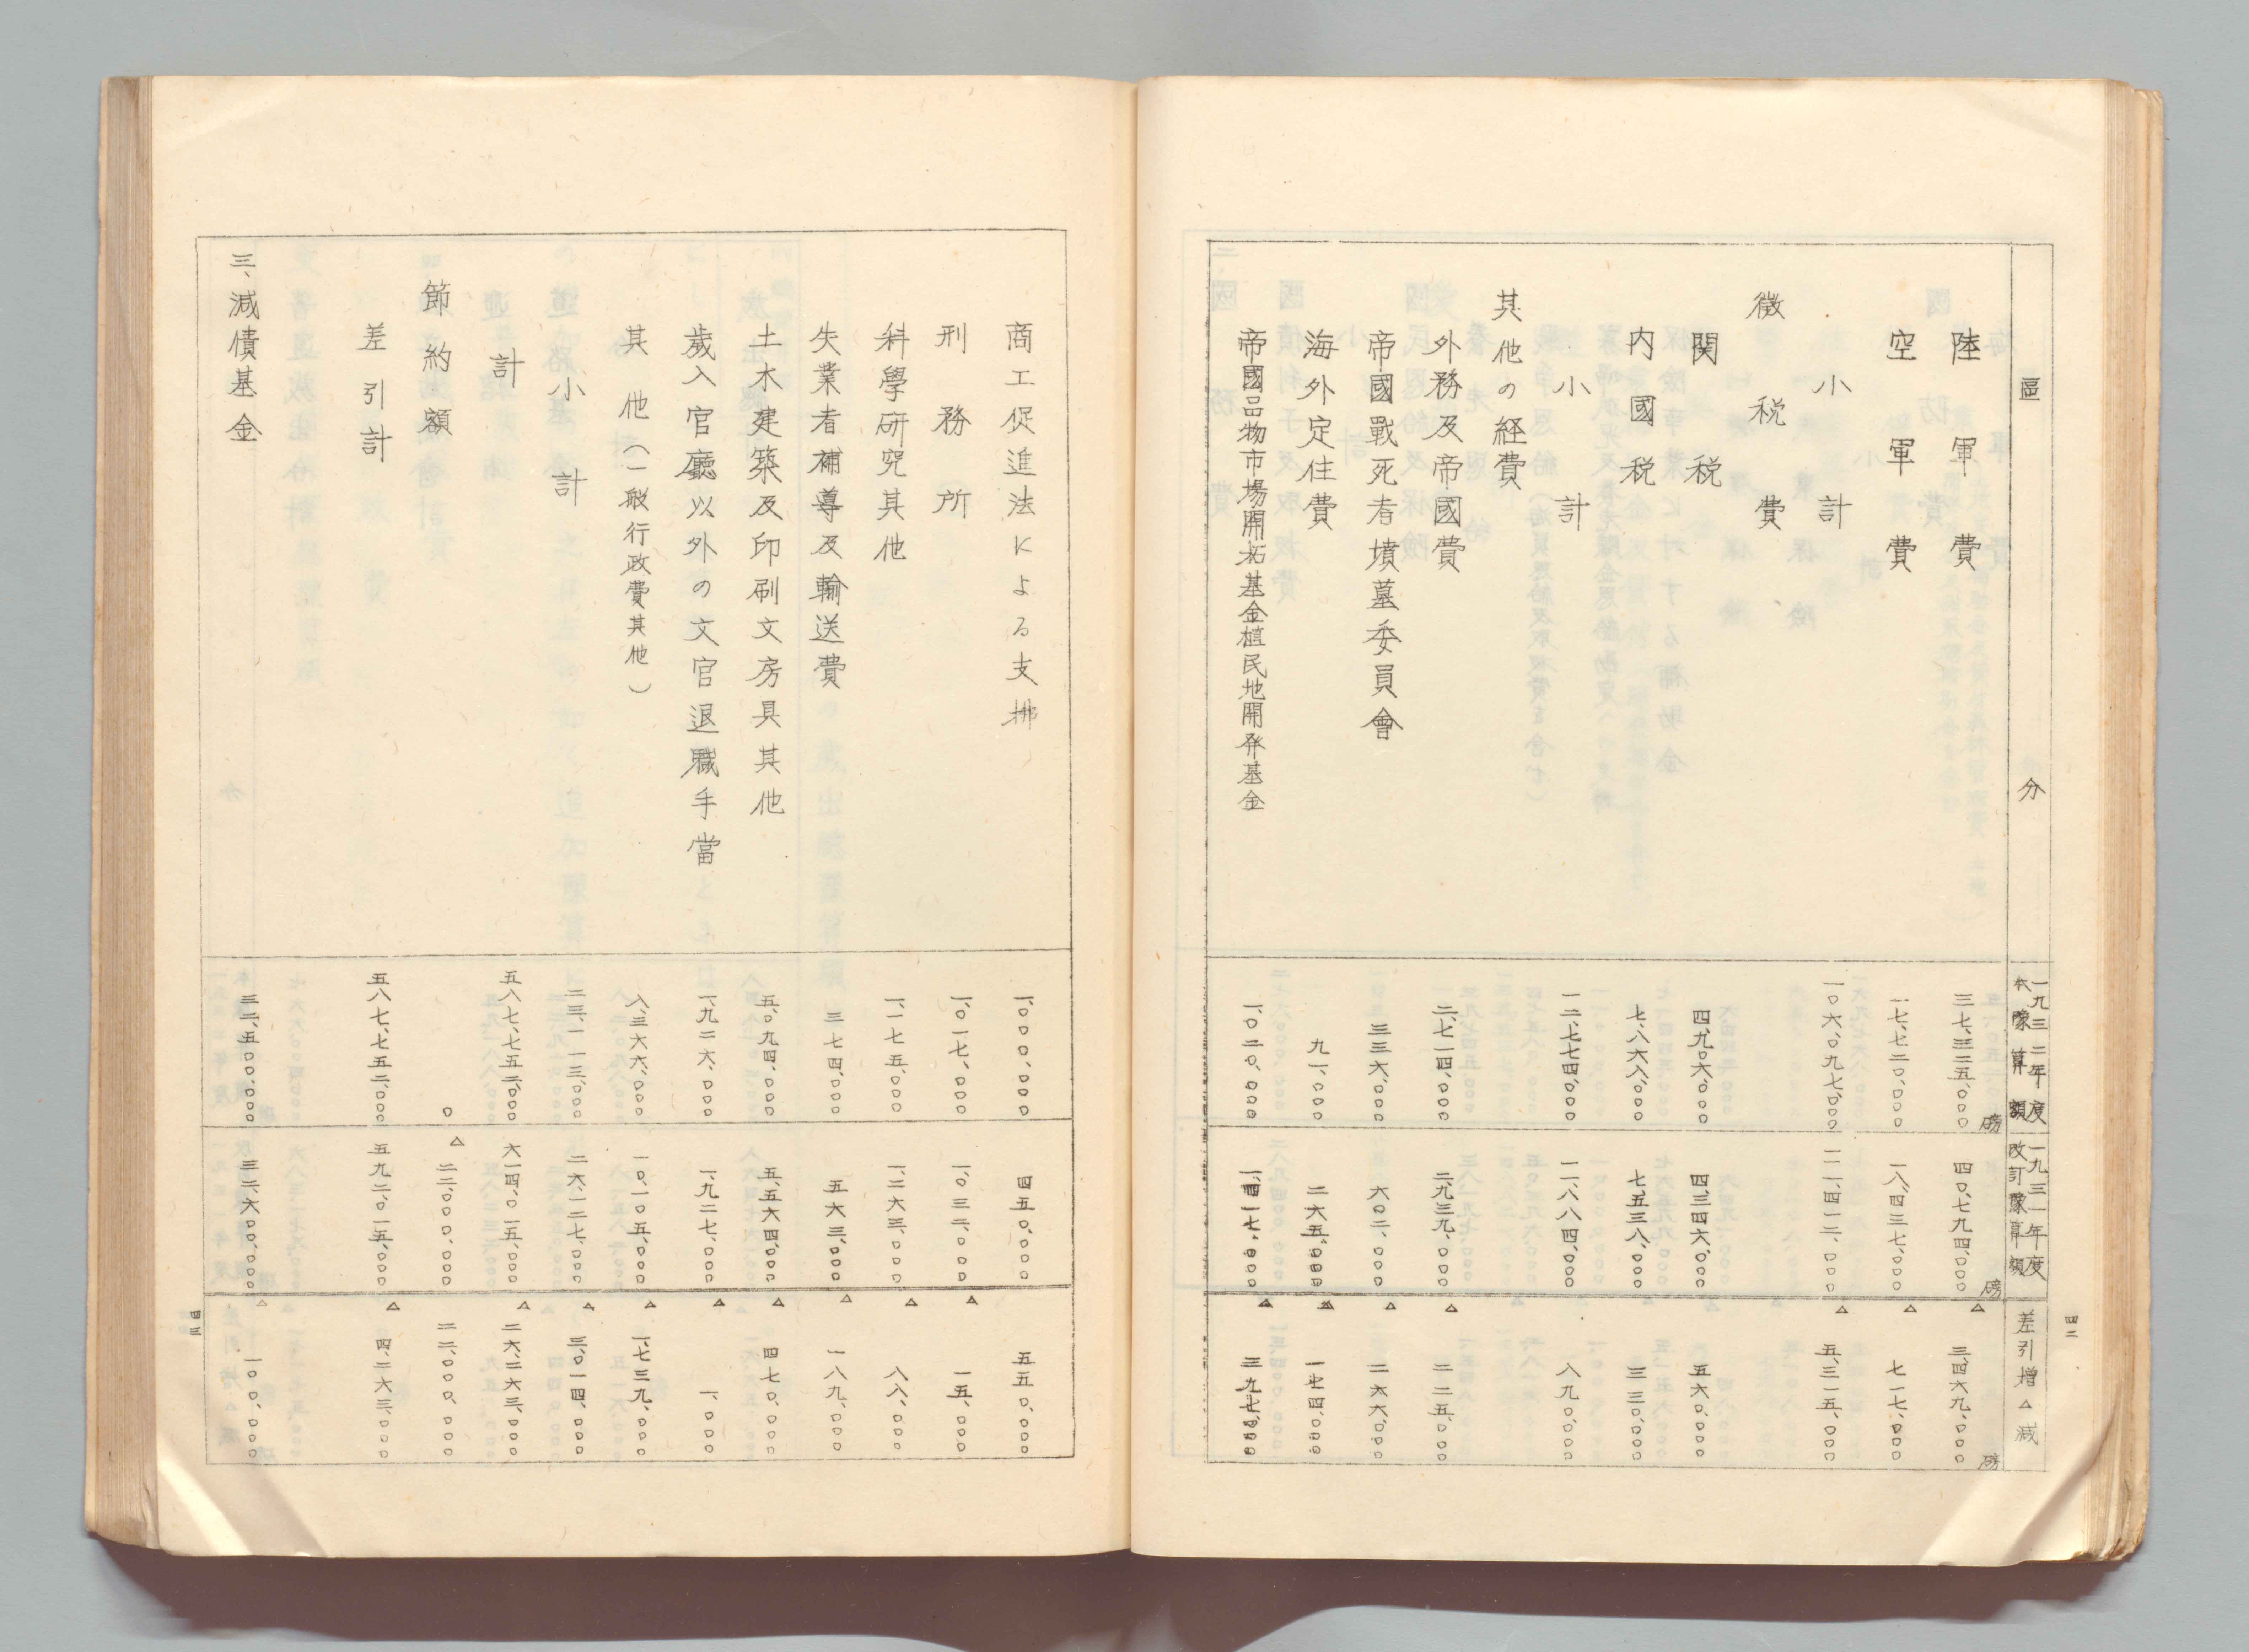 區分 一九三二年度本豫算額 一九三一年度改訂豫算額 差引増△減
磅 磅 磅
陸軍費 三七、三二五、〇〇〇 四〇、七九四、〇〇〇 △三、四六九、〇〇〇
空軍費 一七、七二〇、〇〇〇 一八、四三七、〇〇〇 △七一七、〇〇〇
小計 一〇六、〇九七、〇〇〇 一一一、四一二、〇〇〇 △五、三一五、〇〇〇
徴税費
関税 四、九〇六、〇〇〇 四、三四六、〇〇〇 五六〇、〇〇〇
内國税 七、八六八、〇〇〇 七、五三八、〇〇〇 三三〇、〇〇〇
小計 一二、七七四、〇〇〇 一一、八八四、〇〇〇 八九〇、〇〇〇
其他の経費
外務及帝國費 二、七一四、〇〇〇 二、九三九、〇〇〇 △二二五、〇〇〇
帝國戰死者墳墓委員會 三三六、〇〇〇 六〇二、〇〇〇 △二六六、〇〇〇
海外定住費 九一、〇〇〇 二六五、〇〇〇 △一七四、〇〇〇
帝國品物市場開拓基金植民地開発基金 一、〇二〇、〇〇〇 一、四一七、〇〇〇 △三九七、〇〇〇
四二
商工促進法による支拂 一、〇〇〇、〇〇〇 四五〇、〇〇〇 五五〇、〇〇〇
刑務所 一、〇一七、〇〇〇 一、〇三二、〇〇〇 △一五、〇〇〇
科學研究其他 一、一七五、〇〇〇 一、二六三、〇〇〇 △八八、〇〇〇
失業者補導及輸送費 三七四、〇〇〇 五六三、〇〇〇 △一八九、〇〇〇
土木建築及印刷文房具其他 五、〇九四、〇〇〇 五、五六四、〇〇〇 △四七〇、〇〇〇
歳入官廳以外の文官退職手當 一、九二六、〇〇〇 一、九二七、〇〇〇 △一、〇〇〇
其他（一般行政費其他） 八、三六六、〇〇〇 一〇、一〇五、〇〇〇 △一、七三九、〇〇〇
小計 二三、一一三、〇〇〇 二六、一二七、〇〇〇 △三、〇一四、〇〇〇
計 五八七、七五二、〇〇〇 六一四、〇一五、〇〇〇 △二六、二六三、〇〇〇
節約額 〇 △二二、〇〇〇、〇〇〇 二二、〇〇〇、〇〇〇
差引計 五八七、七五二、〇〇〇 五九二、〇一五、〇〇〇 △四、二六三、〇〇〇
三、減債基金 三二、五〇〇、〇〇〇 三二、六〇〇、〇〇〇 △一〇〇、〇〇〇
四三